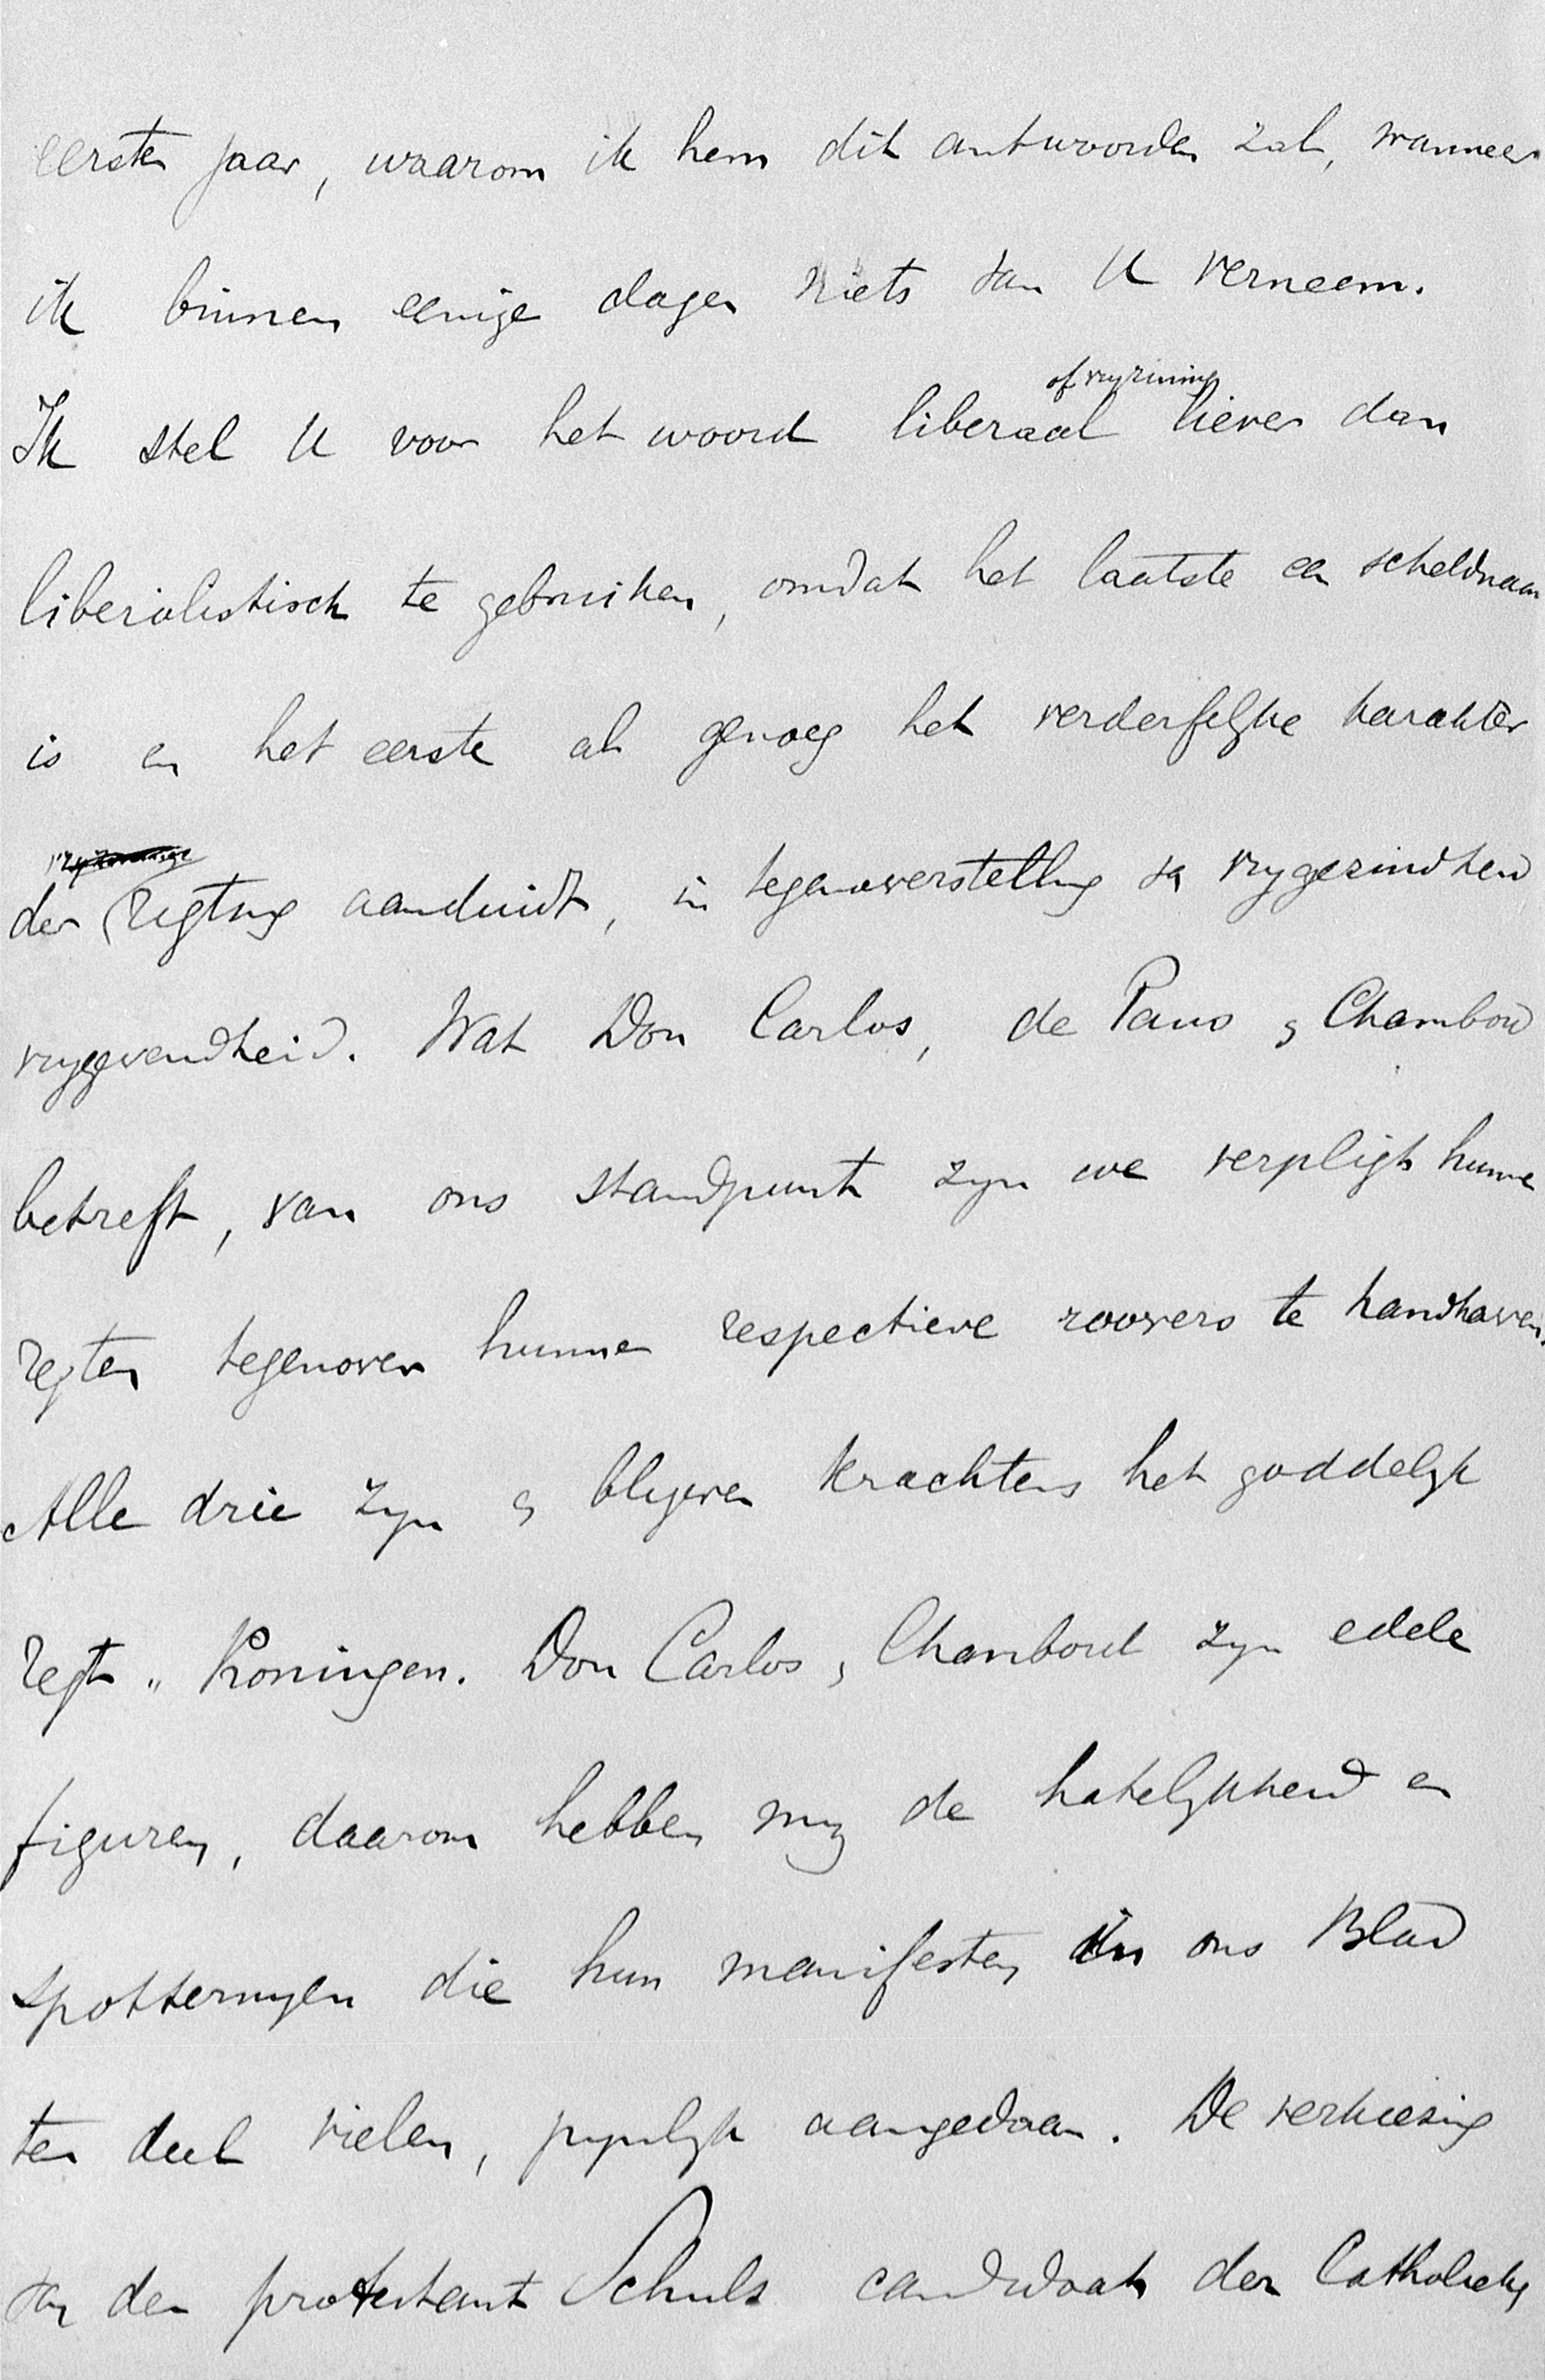 eersten jaar, waarom ik hem dit antwoorden zal, wanneer
ik binnen eenige dagen niets van U verneem.
of vryzinnig
Ik stel U voor het woord liberaal liever dan
liberalistisch te gebruiken, omdat het laatste een scheldnaam
is en het eerste al genoeg het verderfelyke karakter
der rigting aanduidt, in tegenoverstelling van vrygezindheid
vrygevendheid. Wat Don Carlos, de Paus & Chambord
betreft, van ons standpunt zyn we verpligt hunne
regten tegenover hunne respectieve roovers te handhaven.
Alle drie zyn & blyven krachtens het goddelyk
regt „ Koningen. Don Carlos & Chambord zyn edele
figuren, daarom hebben my de hatelykheid en
spotternyen die hun manifesten in ons Blad
ten deel vielen, pynlyk aangedaan. De verkiezing
van den protestant Schuls candidaat der Catholieken